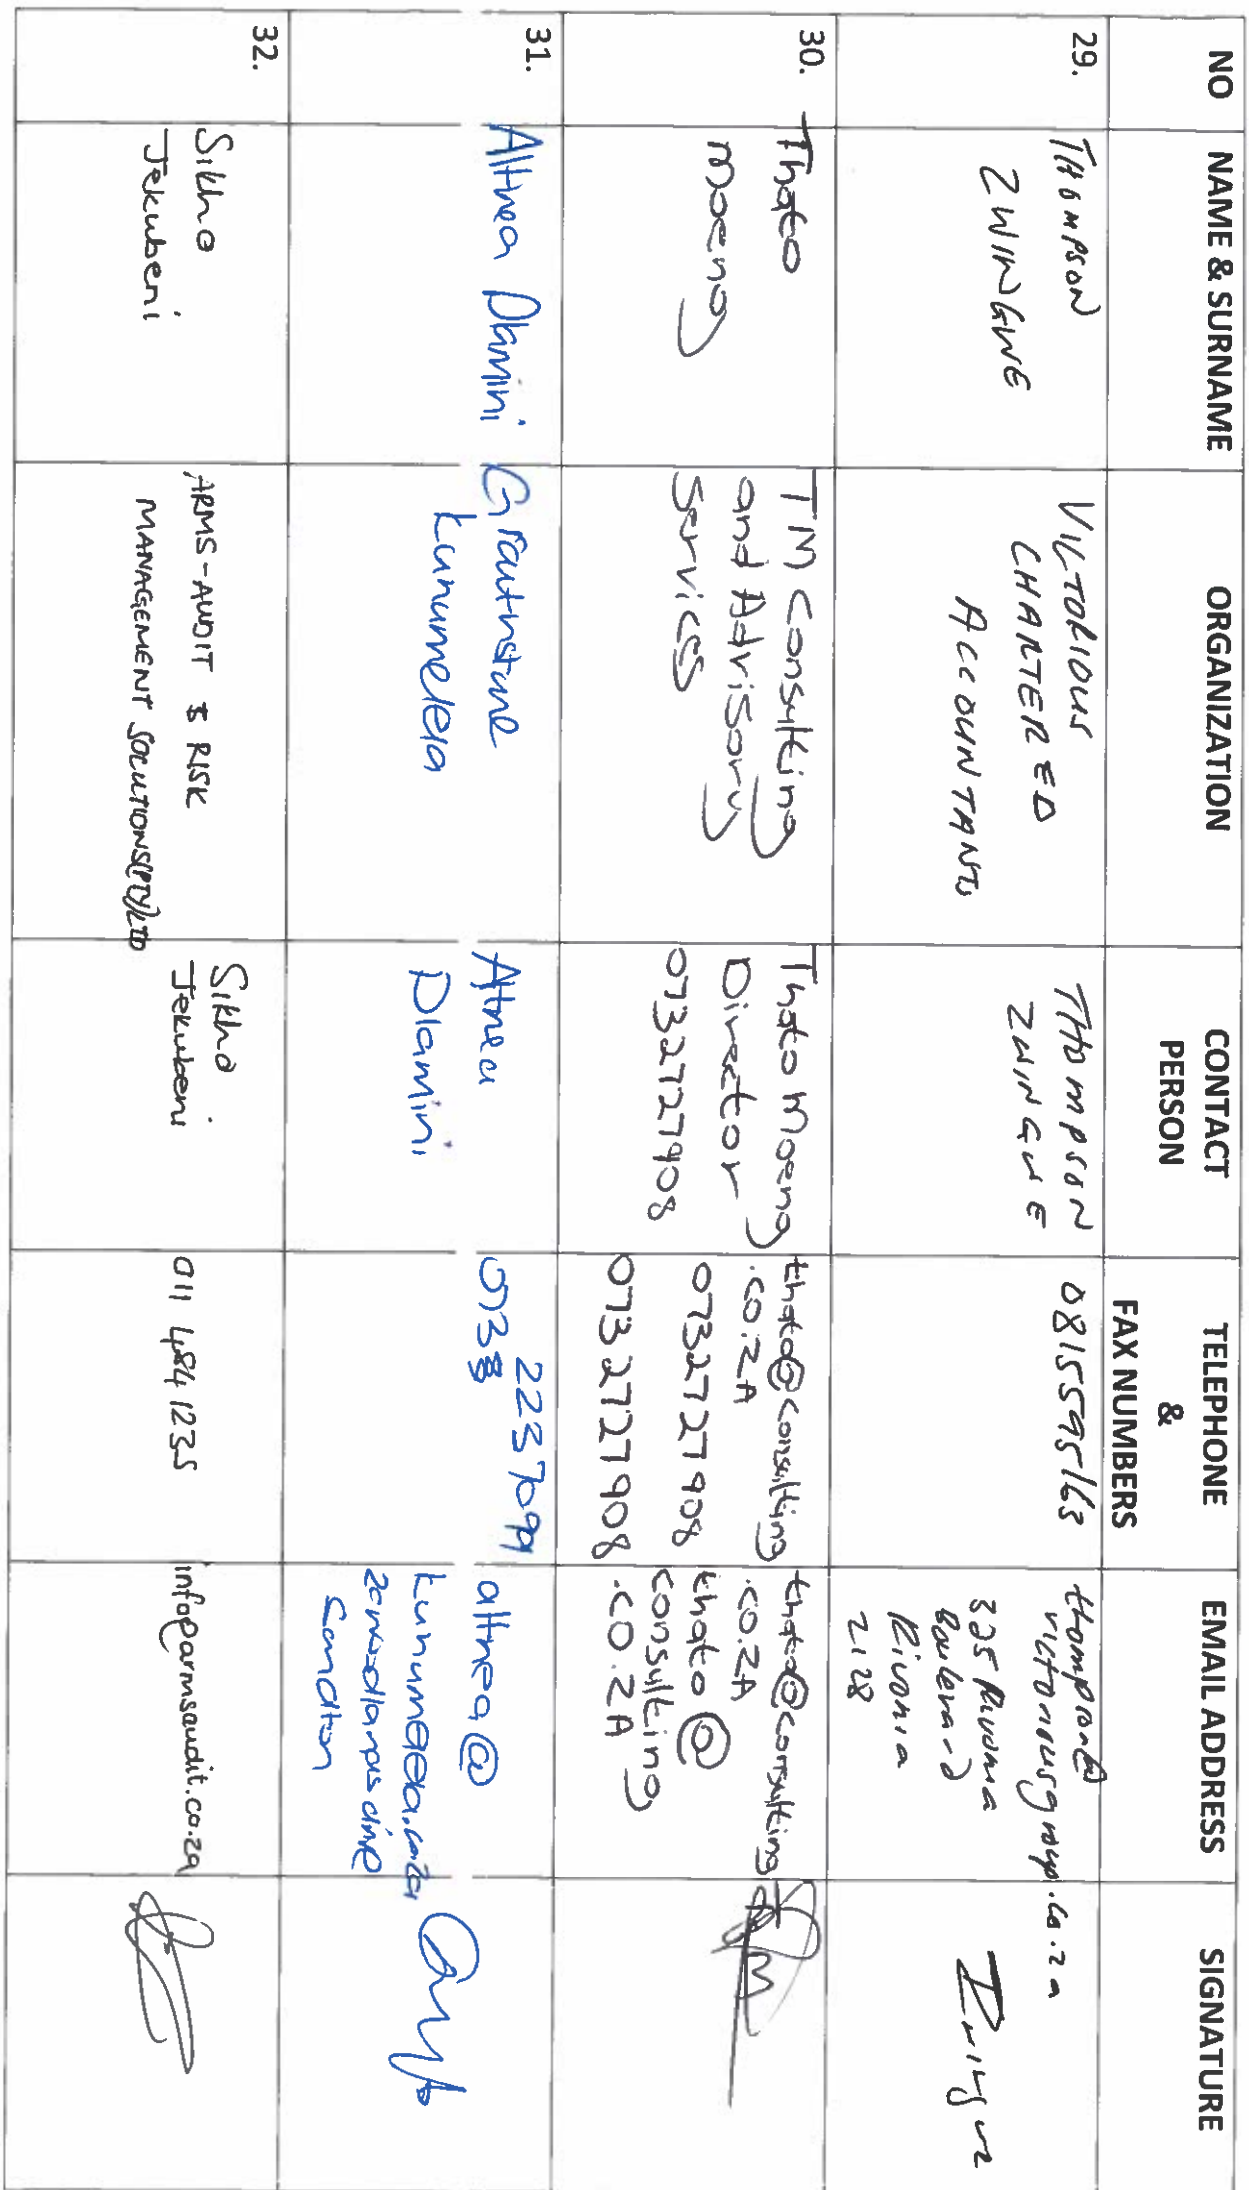 NO
NAME & SURNAME
ORGANIZATION
CONTACT
PERSON
TELEPHONE
&
FAX NUMBERS
EMAIL ADDRESS
SIGNATURE
29.
THOMPSON
ZWINGWE
VICTORIOUS
CHARTERED
ACCOUNTANTS
THOMPSON
ZWINGWE
0815595163
thompson@
victoriousgroup.co.za
325 Rivonia
Boulevard
Rivonia
2128
30.
Thato
Moeng
TM Consulting
and Advisory
Services
Thato Moeng
Director
0732727908
thato@consulting
.co.ZA
0732727908
0732727908
thato@consulting
.co.ZA
thato@
consulting
.co.ZA
31.
Althea Dlamini
Kunumelela
Althea
Dlamini
2237099
073
althea@
Sandton
32.
Sikho
Jekubeni
ARMS-AUDIT & RISK
MANAGEMENT SOLUTIONS(PTY)LTD
Sikho
Jekubeni
011 484 1235
info@armsaudit.co.za